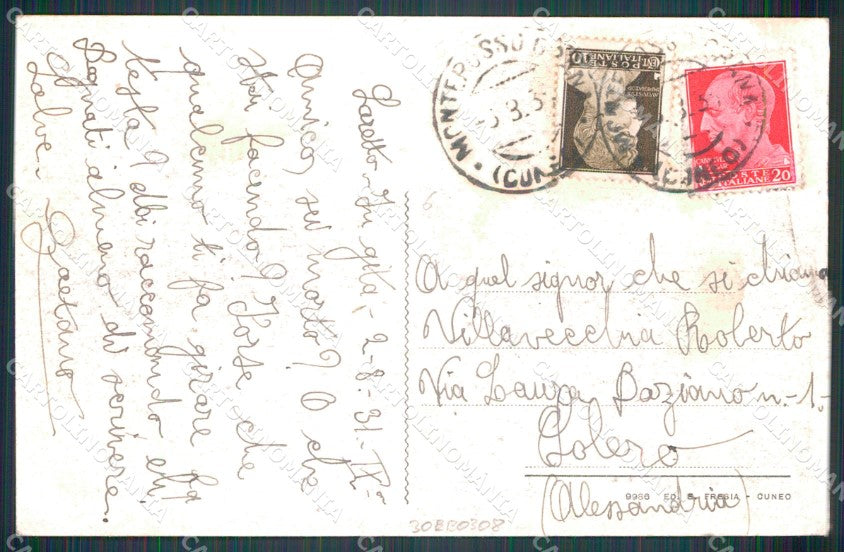 Loretto - In gita - 2-8-31-IX-o
Amico, sei morto? O che
stai facendo? Forse che
qualcuno ti fa girare la
testa? Mi raccomando eh!
Degnati almeno di scrivere.
Salve.
Gaetano
A quel signor che si chiama
Villavecchia Roberto
Via Laura Baziano n. 1.
Solero
(Alessandria)
MONTEROSSO GRANA
(CUNEO)
POSTE
ITALIANE
CENT 10
POSTE
ITALIANE 20
9986 ED. S. FRESIA - CUNEO
30BB0308
6
CARTOLINOMANIA